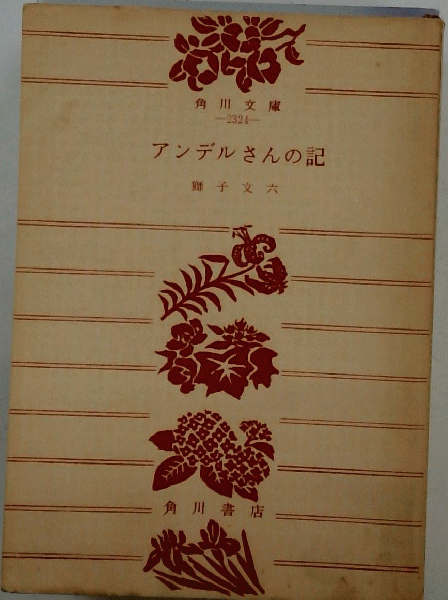 角川文庫
—2324—
アンデルさんの記
獅子文六
角川書店